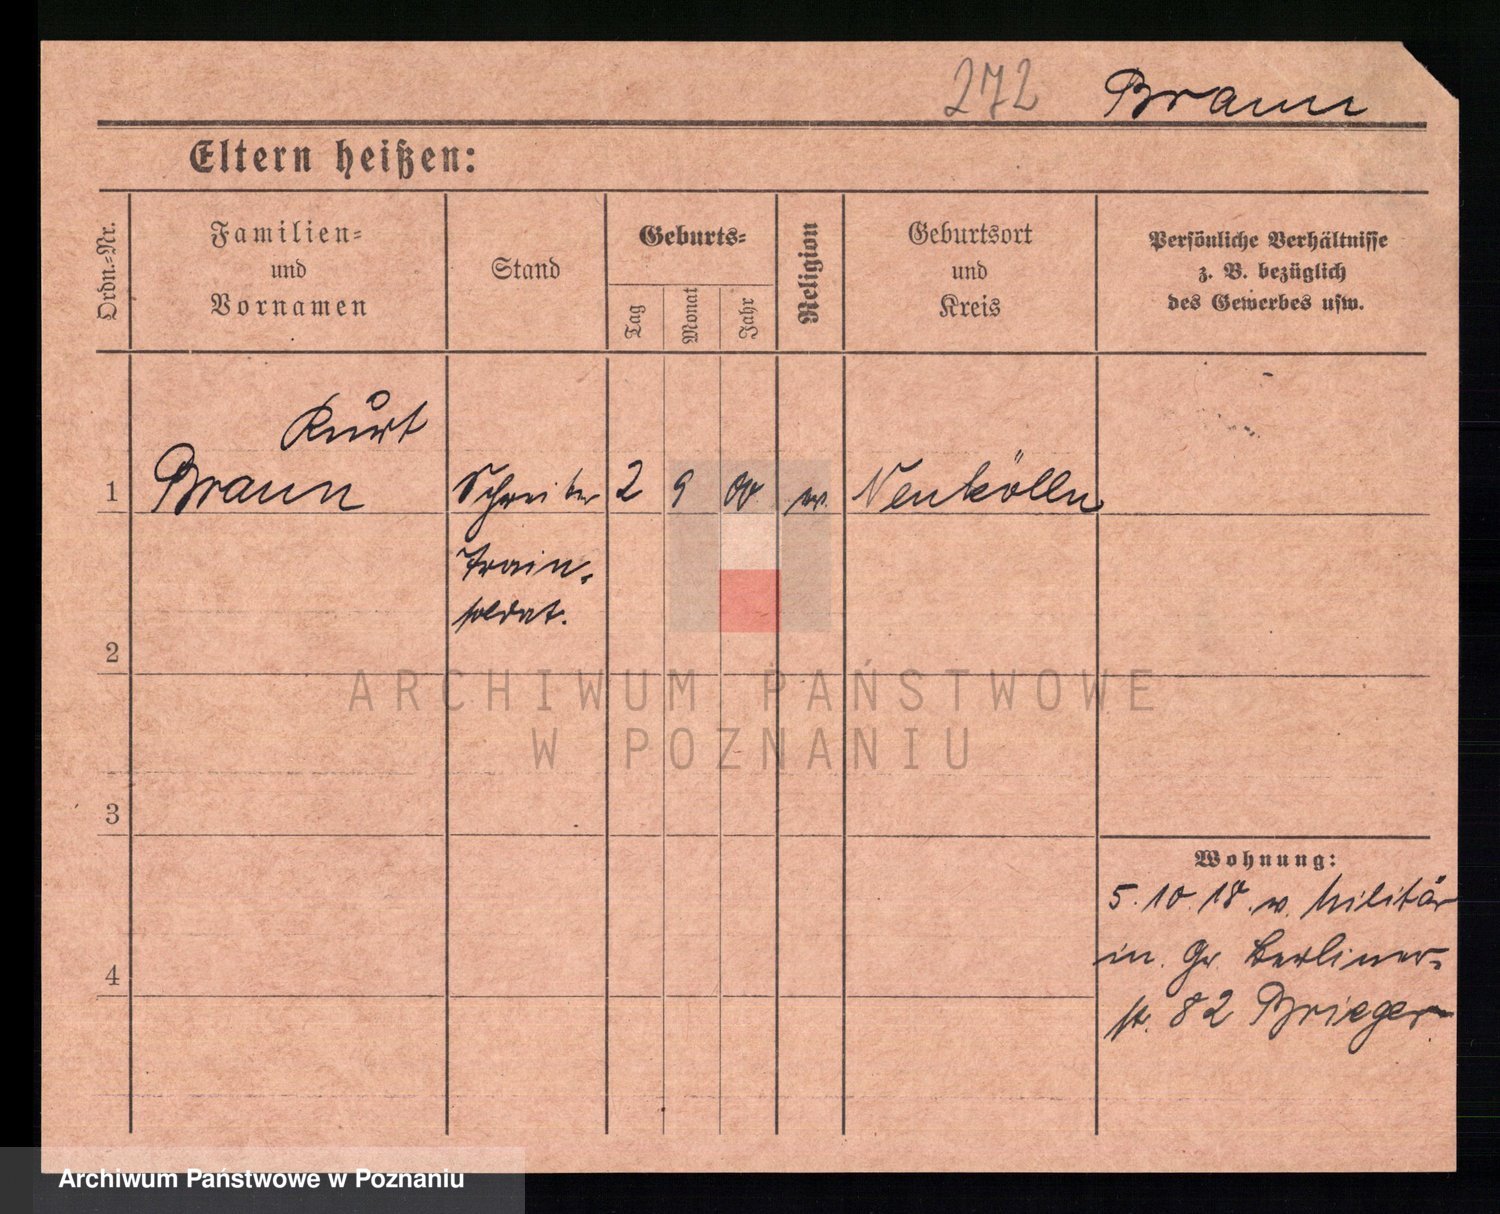 272 Braun
Eltern heißen:
Ordn.-Nr.
Familien-
und
Vornamen
Stand
Geburts-
Tag
Monat
Jahr
Religion
Geburtsort
und
Kreis
Persönliche Verhältnisse
z. B. bezüglich
des Gewerbes usw.
Kurt
1 Braun Schreiber 2 9 00 ev. Neukölln
Train-
soldat.
2
3
4
Wohnung:
5.10.18. v. Militär
in. Gr. Berliner-
st. 82 Brieger
ARCHIWUM PAŃSTWOWE
W POZNANIU
Archiwum Państwowe w Poznaniu